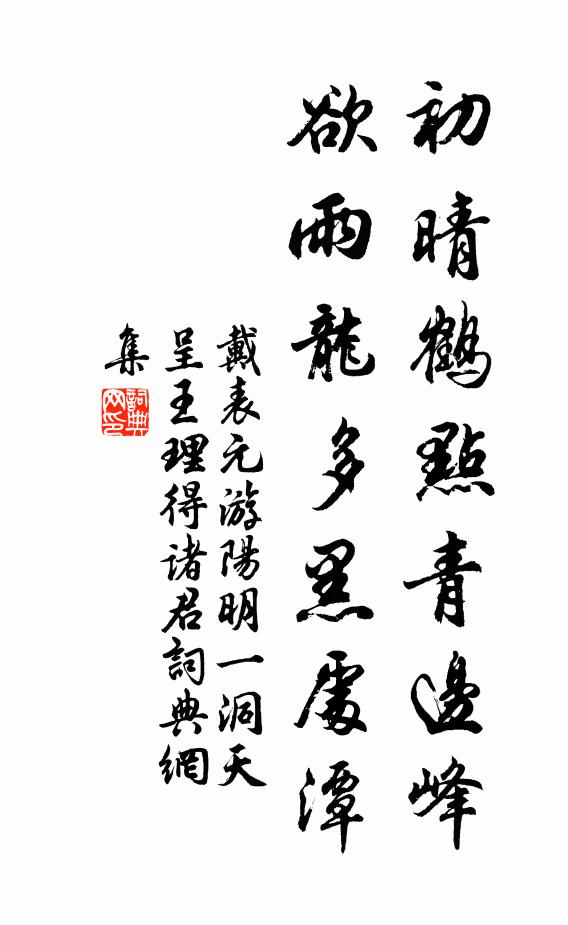 初晴鶴點青邊峰
欲雨龍多黑處潭
戴表元游陽明一洞天
呈王理得诸君詞典網
集
詞典
网印